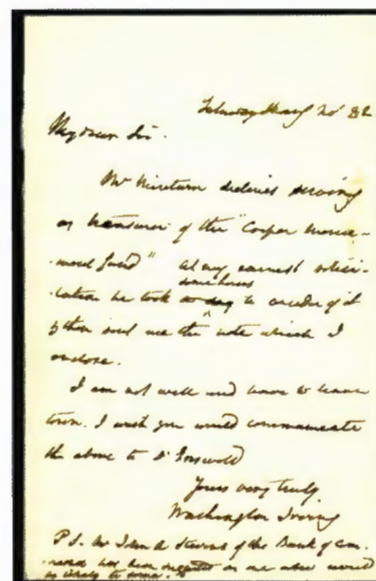 My dear Sir.
Mr Minturn declines serving
as treasurer of the "Cooper monu-
ment fund" At my earnest solici-
some hours
tation he took to consider of it
& then sent me the note which I
enclose.
I am not well and have to leave
town. I wish you would communicate
the above to Dr Griswold
Yours very truly
Washington Irving
P.S. Mr John A Stevens of the Bank of Com-
merce has been suggested as one who would
be likely to serve.